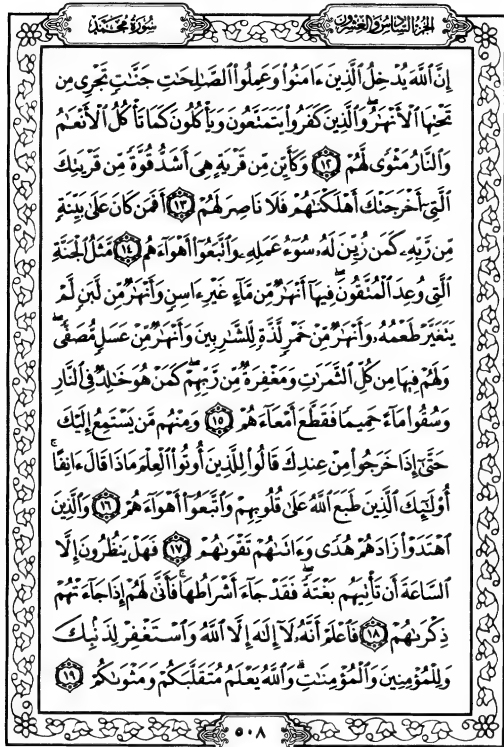 سورة محمد
الجزء السادس والعشرون
إِنَّ ٱللَّهَ يُدْخِلُ ٱلَّذِينَ ءَامَنُوا۟ وَعَمِلُوا۟ ٱلصَّٰلِحَٰتِ جَنَّٰتٍ تَجْرِى مِن
تَحْتِهَا ٱلْأَنْهَٰرُ ۖ وَٱلَّذِينَ كَفَرُوا۟ يَتَمَتَّعُونَ وَيَأْكُلُونَ كَمَا تَأْكُلُ ٱلْأَنْعَٰمُ
وَٱلنَّارُ مَثْوًى لَّهُمْ ١٢ وَكَأَيِّن مِّن قَرْيَةٍ هِىَ أَشَدُّ قُوَّةً مِّن قَرْيَتِكَ
ٱلَّتِىٓ أَخْرَجَتْكَ أَهْلَكْنَٰهُمْ فَلَا نَاصِرَ لَهُمْ ١٣ أَفَمَن كَانَ عَلَىٰ بَيِّنَةٍ
مِّن رَّبِّهِۦ كَمَن زُيِّنَ لَهُۥ سُوٓءُ عَمَلِهِۦ وَٱتَّبَعُوٓا۟ أَهْوَآءَهُم ١٤ مَّثَلُ ٱلْجَنَّةِ
ٱلَّتِى وُعِدَ ٱلْمُتَّقُونَ ۖ فِيهَآ أَنْهَٰرٌ مِّن مَّآءٍ غَيْرِ ءَاسِنٍ وَأَنْهَٰرٌ مِّن لَّبَنٍ لَّمْ
يَتَغَيَّرْ طَعْمُهُۥ وَأَنْهَٰرٌ مِّنْ خَمْرٍ لَّذَّةٍ لِّلشَّٰرِبِينَ وَأَنْهَٰرٌ مِّنْ عَسَلٍ مُّصَفًّى ۖ
وَلَهُمْ فِيهَا مِن كُلِّ ٱلثَّمَرَٰتِ وَمَغْفِرَةٌ مِّن رَّبِّهِمْ ۖ كَمَنْ هُوَ خَٰلِدٌ فِى ٱلنَّارِ
وَسُقُوا۟ مَآءً حَمِيمًا فَقَطَّعَ أَمْعَآءَهُمْ ١٥ وَمِنْهُم مَّن يَسْتَمِعُ إِلَيْكَ
حَتَّىٰٓ إِذَا خَرَجُوا۟ مِنْ عِندِكَ قَالُوا۟ لِلَّذِينَ أُوتُوا۟ ٱلْعِلْمَ مَاذَا قَالَ ءَانِفًا ۚ
أُو۟لَٰٓئِكَ ٱلَّذِينَ طَبَعَ ٱللَّهُ عَلَىٰ قُلُوبِهِمْ وَٱتَّبَعُوٓا۟ أَهْوَآءَهُمْ ١٦ وَٱلَّذِينَ
ٱهْتَدَوْا۟ زَادَهُمْ هُدًى وَءَاتَىٰهُمْ تَقْوَىٰهُمْ ١٧ فَهَلْ يَنظُرُونَ إِلَّا
ٱلسَّاعَةَ أَن تَأْتِيَهُم بَغْتَةً ۖ فَقَدْ جَآءَ أَشْرَاطُهَا ۚ فَأَنَّىٰ لَهُمْ إِذَا جَآءَتْهُمْ
ذِكْرَىٰهُمْ ١٨ فَٱعْلَمْ أَنَّهُۥ لَآ إِلَٰهَ إِلَّا ٱللَّهُ وَٱسْتَغْفِرْ لِذَنۢبِكَ
وَلِلْمُؤْمِنِينَ وَٱلْمُؤْمِنَٰتِ ۗ وَٱللَّهُ يَعْلَمُ مُتَقَلَّبَكُمْ وَمَثْوَىٰكُمْ ١٩
٥٠٨